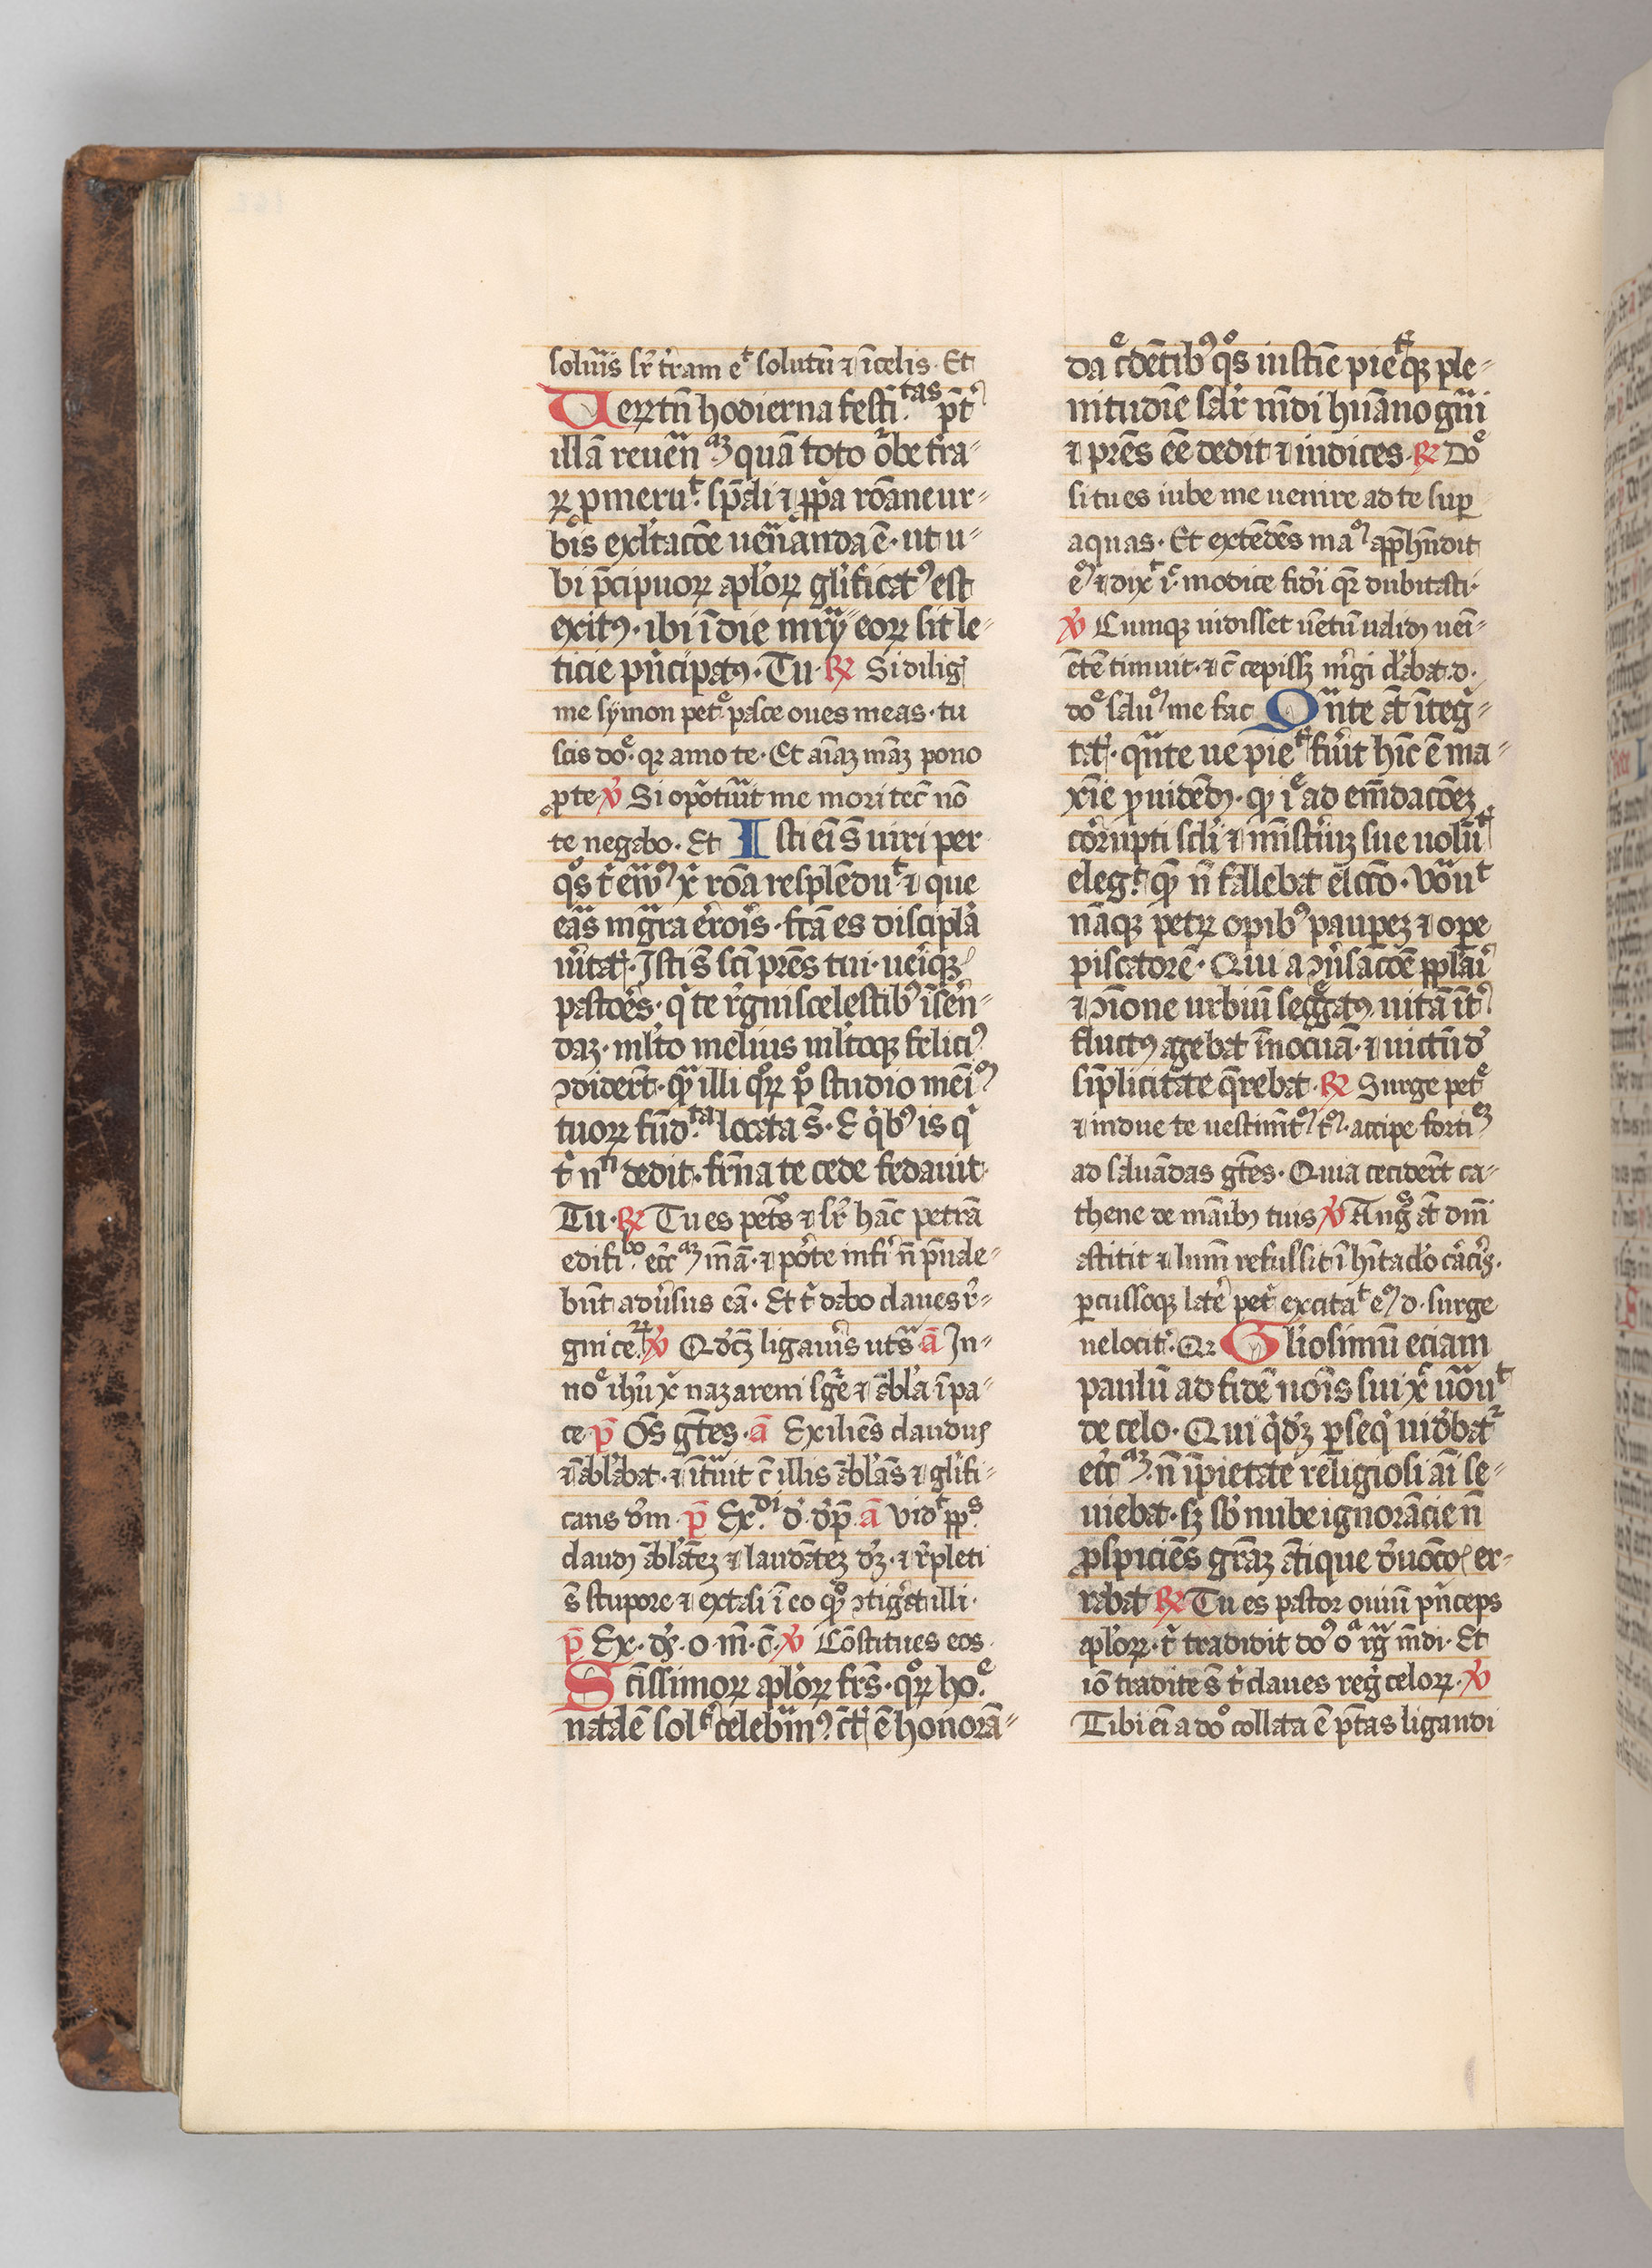 soluis͛ sr̄ t̄ram eᵗ solutū ⁊ ı̄celis · Et
Uerꝝtn̄ hodierna festi.ᵗᵃˢ p̄t᾽
illā reuēnᵃꝫ quā toto orbe t̄ra-
ꝝ pmeruᵗ. sp̄ali ⁊ ꝓp̄a rōane ur-
bis exl̄tacōe uen̄anda ē · ut u-
bi p̄cipuoꝝ apl̓oꝝ gl̓ificatꝰ est
exitꝰ · ibi ı̄ die mr̄ÿ eoꝝ sit le-
ticie pn̄cipatꝰ · Tu · ℟ Si dilig̓
me sÿmon petᵉ. pasce oues meas · tu
scis doᵉ. qꝛ amo te · Et aı̄aꝫ mēaꝫ pono
ꝓ te ℣ Si opotuı̄t me mori tec̄ nō
te negabo · Et Isti eı̄ s̄ uiri per
qᵒs t̓ ew̄ᵐ xp̄i rōa resplēduᵗ ⁊ que
eras mgr̄a erroris · fc̄a es discipl̓a
uı̄tatꝭ · Isti s̄ sc̄i pr̄es tui · ueriqꝫ
pastōes · qⁱ te rᵉgnis celestibꝰ ı̄sēn-
daꝫ · ml̓to melius ml̓toqꝫ feliciꝰ
ꝯdider̄t · qᵃ illi qᵒꝝ pᵒ studio meı̄ᵐ
tuoꝝ fūd.ᵗᵃ locata s̄ · E qⁱbꝰ is qⁱ
t̓ nⁿ dedit · fr̄na te cede fedauit ·
Tu · ℟ Tu es petrꝰ ⁊ sr̄ hāc petrā
edifi.ᵇᵒ ecc̄ᵃꝫ mēā · ⁊ porte infiⁱ n̄ p̄uale-
būt adūsus eā · Et t̓ dabo claues rᵉ-
gni ce.ꝝ ℣ Qd̓cꝫ ligaūis ut sᵃ ā In-
noᵉ ihū xp̄i nazareni sgᵉ ⁊ ābl̓a ı̄ pa-
ce p̄ Ōs gt̄es · ā Exiliēs claudus
⁊ ābl̓abat · ⁊ ı̄tuı̄t c̄ illis ābl̓ās ⁊ gl̓ifi-
cans dm̄ · p̄ Ex.ᵈⁱ d̓ · dp̄ · ā Vidᵗ ppˢ.
claudꝰ ābl̓ātēꝫ ⁊ laudātēꝫ dꝫ̓ · ⁊ rᵉpleti
s̄ stupore ⁊ extasi ı̄ eo qᵒ ꝯtigᵉat illi ·
p̄ Ex · ds̓ · o · m̄ · c̄ · ℣ Cōstitues eos ·
Sc̄issimoꝝ apl̓oꝝ frs̄ · qᵒꝝ hoᵉ.
natalē solᵗ celebᵃmꝰ. c̄tꝭ ē honorā-
da ᵉc̄dētibꝰ qᵒs iustıē pieᵗ.qꝫ ple-
nitudiē saluaᵗ. mūdi huāno gn̄i
⁊ pr̄es eē dedit ⁊ iudices · ℟ Doᵉ
si tu es iube me uenire ad te sup̱
aquas · Et extēdēs maᵐ app̄hn̄dit
eᵐ ⁊ dixᵗ iᶜ · modice fidı̄ qꝛ̄ dubitasti ·
℣ Cumqꝫ uidisset uētū ualidū uēi-
ētē timuit · ⁊ c̄ cepissꝫ m̄gi cl̓abat · d ·
doᵉ saluᵐ me fac Quāte āt ı̄teg̓-
tatꝭ · qᵃnte ue pieᵗ fuı̄t hic̄ ē ma-
xīe ꝓuidēdꝰ · qᵃ iᵉ ad em̄dacōeꝫ
cōrupti scl̓i ⁊ mı̄steriuꝫ sue uolūᵗᵗ
elegᵗ. qᵒ n̄ fallebat el̄cᵒo · Vocauᵗ
nāqꝫ petrꝝ opibꝰ paupeꝫ ⁊ ope
piscatorē · Qui a ꝯuersacōe pplari
⁊ ꝯione urbiū seggatꝰ uitā ı̄t᾽
fluctꝰ agebat ı̄nocuā · ⁊ uictū d̓
sı̄plicitate qᵉrebat · ℟ Surge petᵉ
⁊ indue te uestimtᵒ tᵒ · accipe fortiᵉꝫ
ad saluādas gt̄es · Quia cecider̄t ca-
thene de māibꝰ tuis ℣ Angᵉ āt dnı̄
astitit ⁊ lum̄ refulsit ı̄ hı̄tacl̓o carcis ·
ꝑcussoqꝫ latē petⁱ excitaᵗ eᵐ d · surge
uelocitᵉ. Qꝛ Gl̓iosimū eciam
paulū ad fidē noı̄s sui xp̄ı uōuᵗ
de celo · Qui qⁱdꝫ ꝑseqⁱ uidebatʳ
ecc̄ᵃꝫ. n̄ ı̄pietate religiosi aı̄ se-
uiebat · sꝫ sb̓ nube ignorācie n̄
ꝓspiciēs grāꝫ ātique d̓uocōꝭ er-
rabat ℟ Tu es pastor ouiū pn̄ceps
apl̓oꝝ · t̓ tradidit do᾽ oᵃ rgᵃ mn̄di · Et
iō tradite s̄ t̓ claues regⁱ celoꝝ · ℣
Tibi eı̄ a doᵒ collata ē ptās ligandi